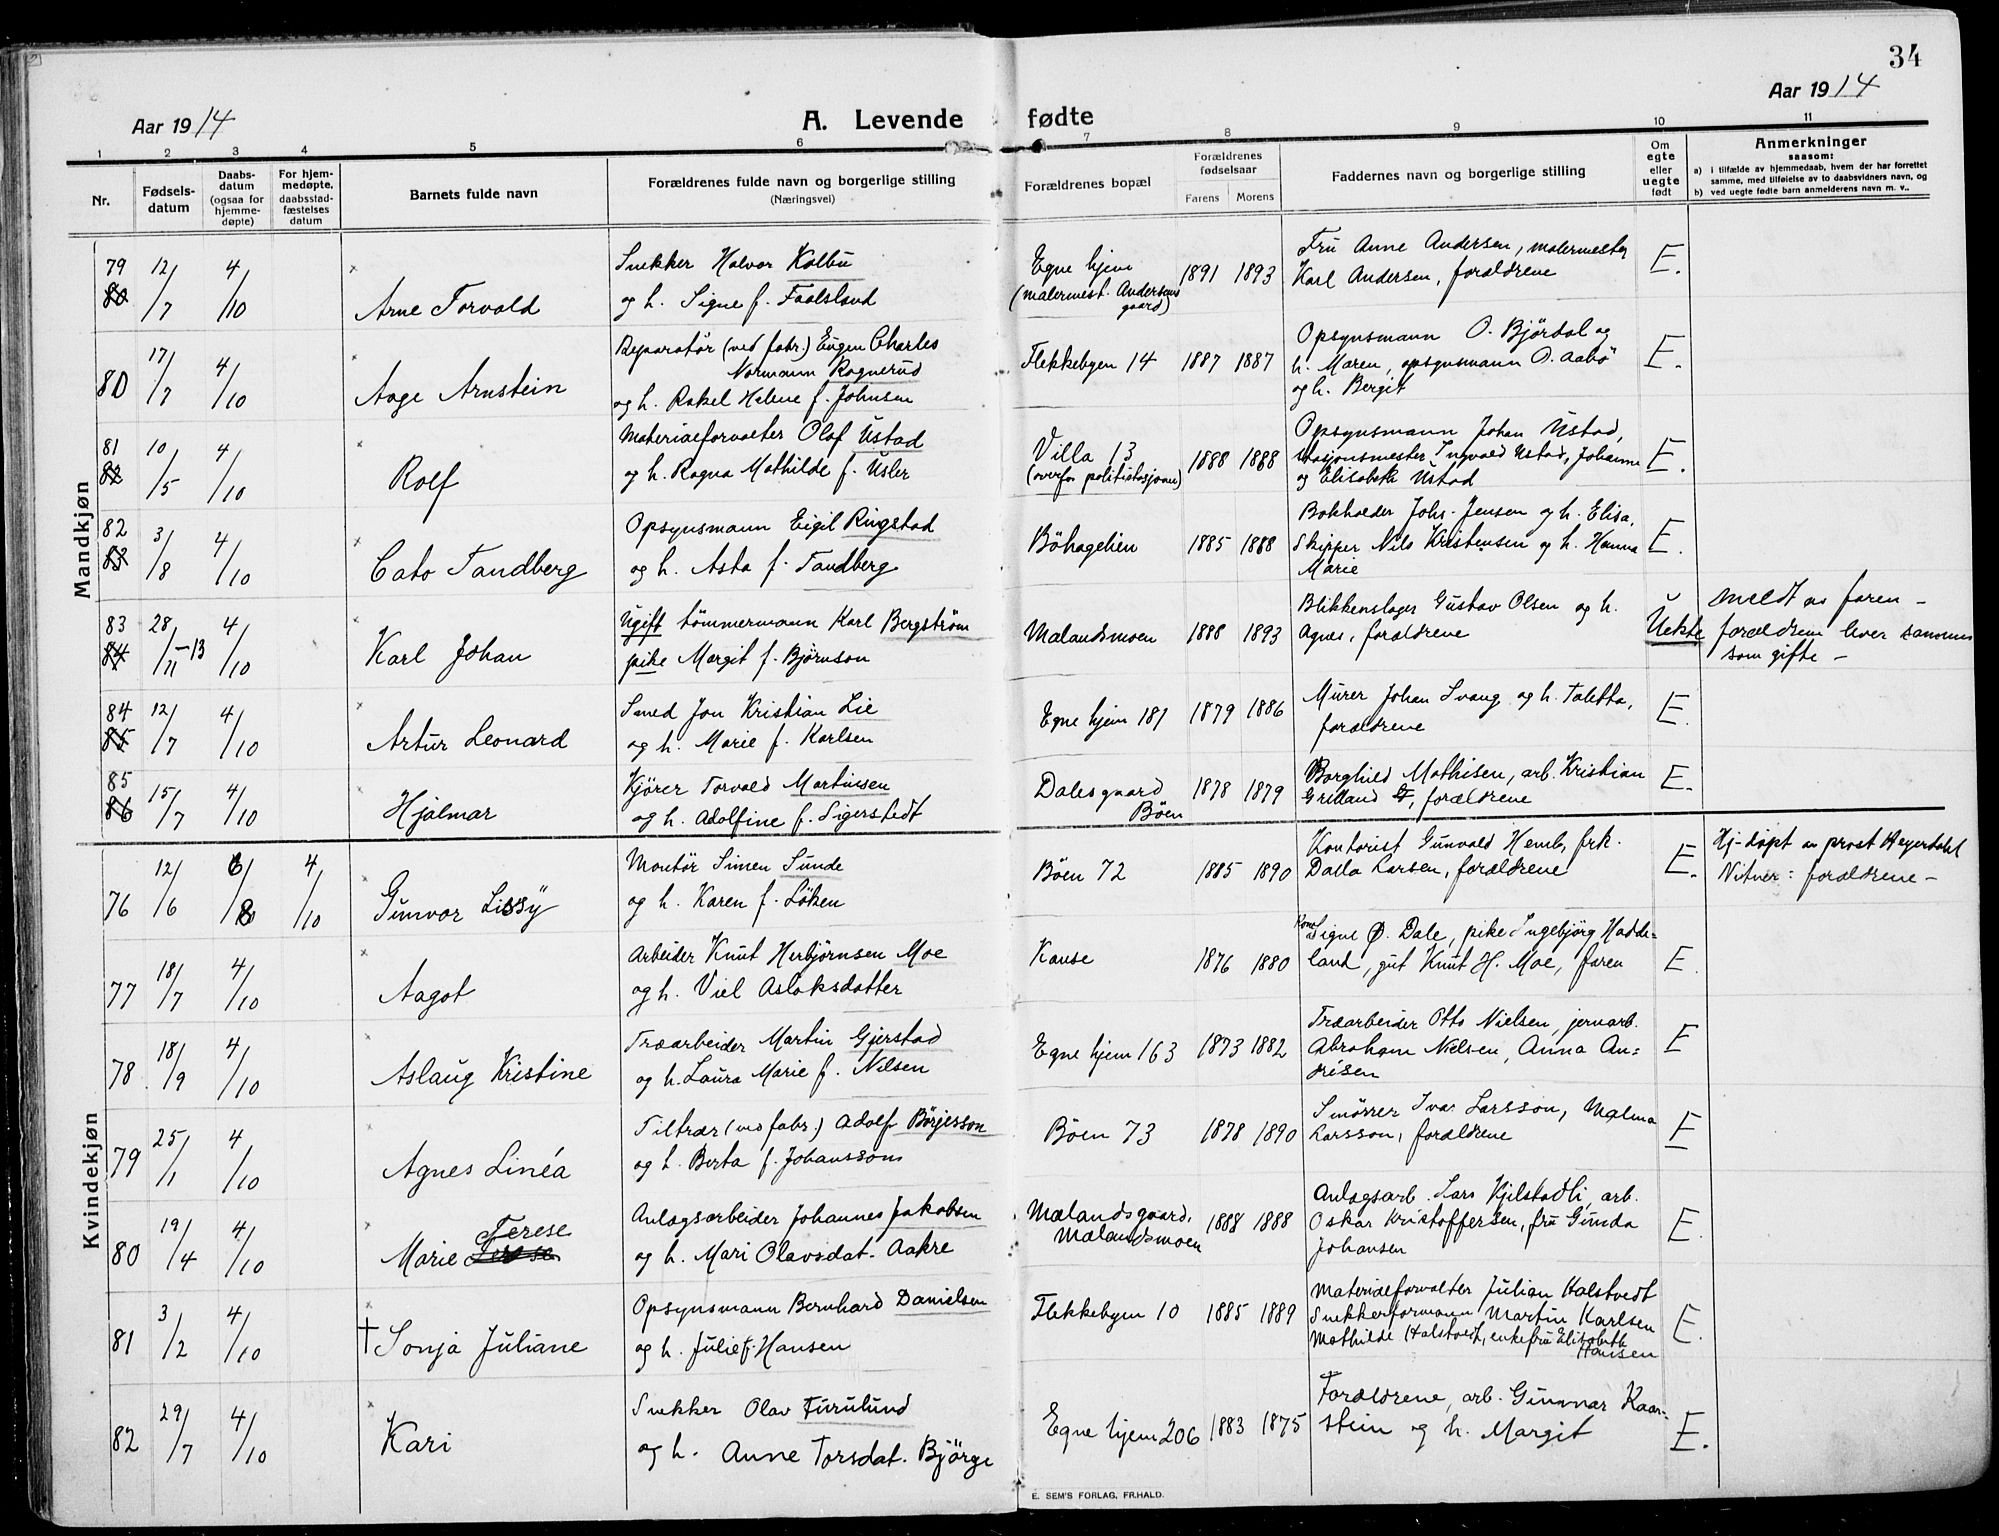 34
Aar 1914
A. Levende fødte
Aar 1914
1 2 3 4 5 6 7 8 9 10 11
Nr.
Fødsels-
datum
Daabs-
datum
(ogsaa for
hjemme-
døpte)
For hjem-
medøpte,
daabsstad-
fæstelses
datum
Barnets fulde navn
Forældrenes fulde navn og borgerlige stilling
(Næringsvei)
Forældrenes bopæl
Forældrenes
fødselsaar
Farens Morens
Faddernes navn og borgerlige stilling
Om
egte
eller
uegte
født
Anmerkninger
saasom:
a) i tilfælde av hjemmedaab, hvem der har forrettet
samme, med tilføielse av to daabsvidners navn, og
b) ved uegte fødte barn anmelderens navn m. v..
Mandkjøn
79 80 12/7 4/10 Arne Torvald
Snekker Halvor Kolbu
og h. Signe f. Faalsland
Egne hjem
(malermest. Andersens
gaard)
1891 1893
Fru Anne Andersen, malermester
Karl Andersen, forældrene
E.
80 17/7 4/10 Aage Arnstein
Reparatør (ved fabr.) Eugen Charles
Normann Ragnerud
og h. Rakel Helene f. Johnsen
Flekkebyen 14 1887 1887
Opsynsmann O. Bjørdal og
h. Maren, opsynsmann O. Aabö
og h. Bergit
E.
81 82 10/5 4/10 Rolf
Materialforvalter Olaf Ustad
og h. Ragna Mathilde f. Usler
Villa 13
(overfor politistasjonen)
1888 1888
Opsynsmann Johan Ustad,
stasjonsmester Ingvald Ustad, Johanne
og Elisabeth Ustad
E.
82 83 3/8 4/10 Cato Tandberg
Opsynsmann Eigil Ringstad
og h. Asta f. Tandberg
Böhagelien 1885 1888
Bokholder Johs. Jensen og h. Elisa,
Skipper Nils Kristensen og h. Hanna
Marie
E.
83 84 28/11-13 4/10 Karl Johan
Ugift tömmermann Karl Bergström
pike Margit f. Björnson
Mælandsmoen 1888 1893
Blikkenslager Gustav Olsen og h.
Agnes, forældrene
Uekte
meldt av faren –
forældrene lever sammen
som gifte –
84 85 12/7 4/10 Artur Leonard
Smed Jon Kristian Lie
og h. Marie f. Karlsen
Egne hjem 181 1879 1886
Murer Johan Svang og h. Taletta,
forældrene
E.
85 86 15/7 4/10 Hjalmar
Kjörer Torvald Martinssen
og h. Adolfine f. Sigerstedt
Dalesgaard
Böen
1878 1879
Borghild Mathisen, arb. Kristian
Grilland, forældrene
E.
Kvindekjøn
76 12/6 6/8 4/10 Gunvor Lissy
Montör Simen Sunde
og h. Karen f. Löken
Böen 72 1885 1890
Kontorist Gunvald Hemb, frk.
Dalla Larsen, forældrene
E.
Hj-döpt av prost Heyerdahl
Vitner: forældrene –
77 18/7 4/10 Aagot
Arbeider Knut Herbjörnsen Moe
og h. Viel Aslaksdatter
Kause 1876 1880
Kone Signe Ø. Dale, pike Ingebjörg Hadde=
land, gut Knut H. Moe, faren
E
78 18/9 4/10 Aslaug Kristine
Træarbeider Martin Gjerstad
og h. Laura Marie f. Nilsen
Egne hjem 163 1873 1882
Træarbeider Otto Nielsen, jernarb.
Abraham Nielsen, Anna An=
dresen
E
79 25/1 4/10 Agnes Linéa
Tiltrær (ved fabr.) Adolf Börjesson
og h. Berta f. Johansson
Böen 73 1878 1890
Smörrer Ivar Larsson, Malma
Larsson, forældrene
E
80 19/4 4/10 Marie Terese
Anlægsarbeider Johannes Jakobsen
og h. Mari Olavsdat. Aakre
Mælandsgaard,
Mælandsmoen
1888 1888
Anlægsarb. Lars Kjelstadli, arb.
Oskar Kristoffersen, fru Gunda
Johansen
E.
81 3/2 4/10 † Sonja Juliane
Opsynsmann Bernhard Danielsen
og h. Julie f. Hansen
Flekkebyen 10 1885 1889
Materialforvalter Julian Halstvedt
Snekkerformann Martin Karlsen
Mathilde Halstvedt, enkefru Elisabeth
Hansen
E.
82 29/7 4/10 Kari
Snekker Olav Furulund
og h. Anne Torsdat. Björge
Egne hjem 206 1883 1875
Forældrene, arb. Gunnar Kaar=
stein og h. Margit
E.
E. SEM'S FORLAG, FR.HALD.